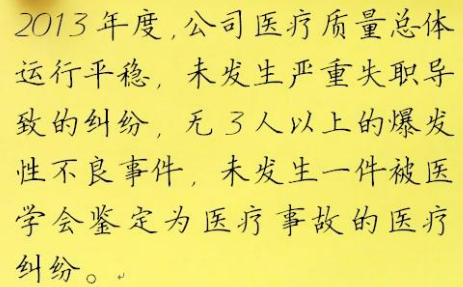 2013年度,公司医疗质量总体
运行平稳，未发生严重失职导
致的纠纷，无3人以上的爆发
性不良事件，未发生一件被医
学会鉴定为医疗事故的医疗
纠纷。